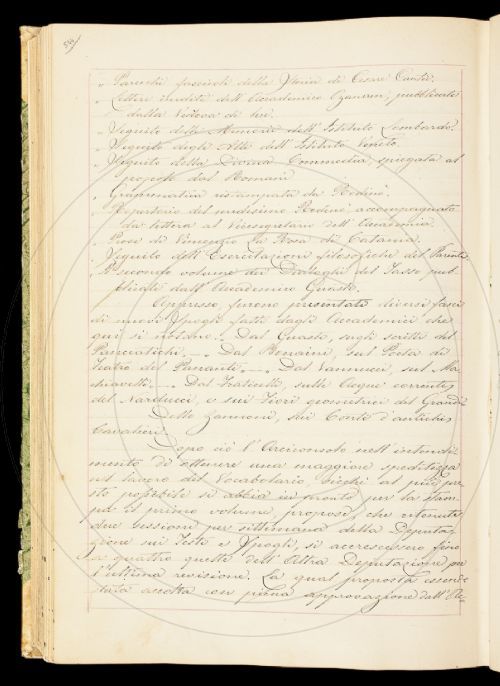 " Parecchi fascicoli della Storia di Cesare Cantù.
" Lettere inedite dell'Accademico Ozanam, pubblicate
dalla Vedova di lui.
" Seguito delle Memorie dell'Istituto Lombardo.
" Seguito degli Atti dell'Istituto Veneto.
" Seguito della Divina Commedia, spiegata al
popolo dal Romani
" Grammatica ristampata da Rodinò.
" Repertorio del medesimo Rodinò accompagnato
da lettera al Vicesegretario dell'Accademia.
" Prose di Vincenzo La Rosa di Catania.
" Seguito dell'Esercitazioni filologiche del Parenti
" Il secondo volume dei Dialoghi del Tasso pub-
blicati dall'Accademico Guasti.
Appresso furono presentati diversi fasci
di nuovi Spogli fatti dagli Accademici che
qui si notano. Dal Guasti, sugli scritti del
Panciatichi. — Dal Bonaini, sul Poeta di
Teatro del Pananti. — Dal Vannucci, sul Ma-
chiavelli. — Dal Fraticelli, sulle Acque correnti
del Narducci, e sui Fiori geometrici del Grandi
Dello Zannoni, sui Conti d'antichi
Cavalieri.
Dopo ciò l'Arciconsolo nell'intendi-
mento di ottenere una maggiore speditezza
nel lavoro del Vocabolario, sicché al più pre-
sto possibile si abbia in pronto per la stam-
pa il primo volume, propose, che ritenute
due sessioni per settimana della Deputa-
zione sui Testi e Spogli, si accrescessero fino
a quattro quelle dell'Altra Deputazione per
l'ultima revisione. La qual proposta essendo
stata accolta con piena approvazione dall'Ac-